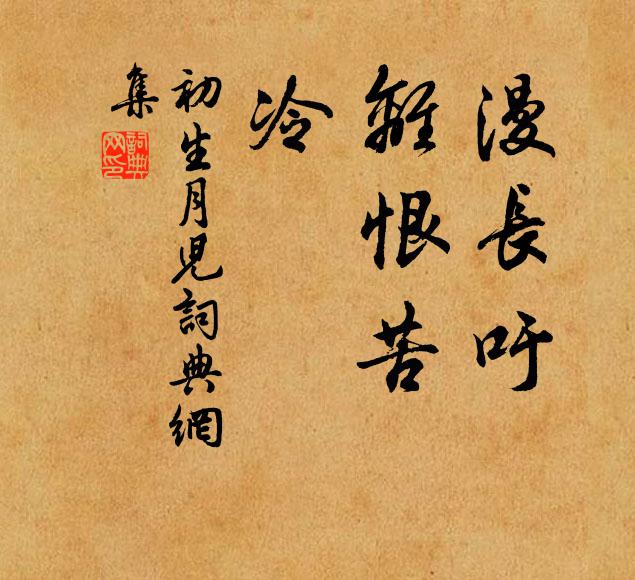 漫長吁
離恨苦
冷
初生月兒詞典網
集
詞典
網印